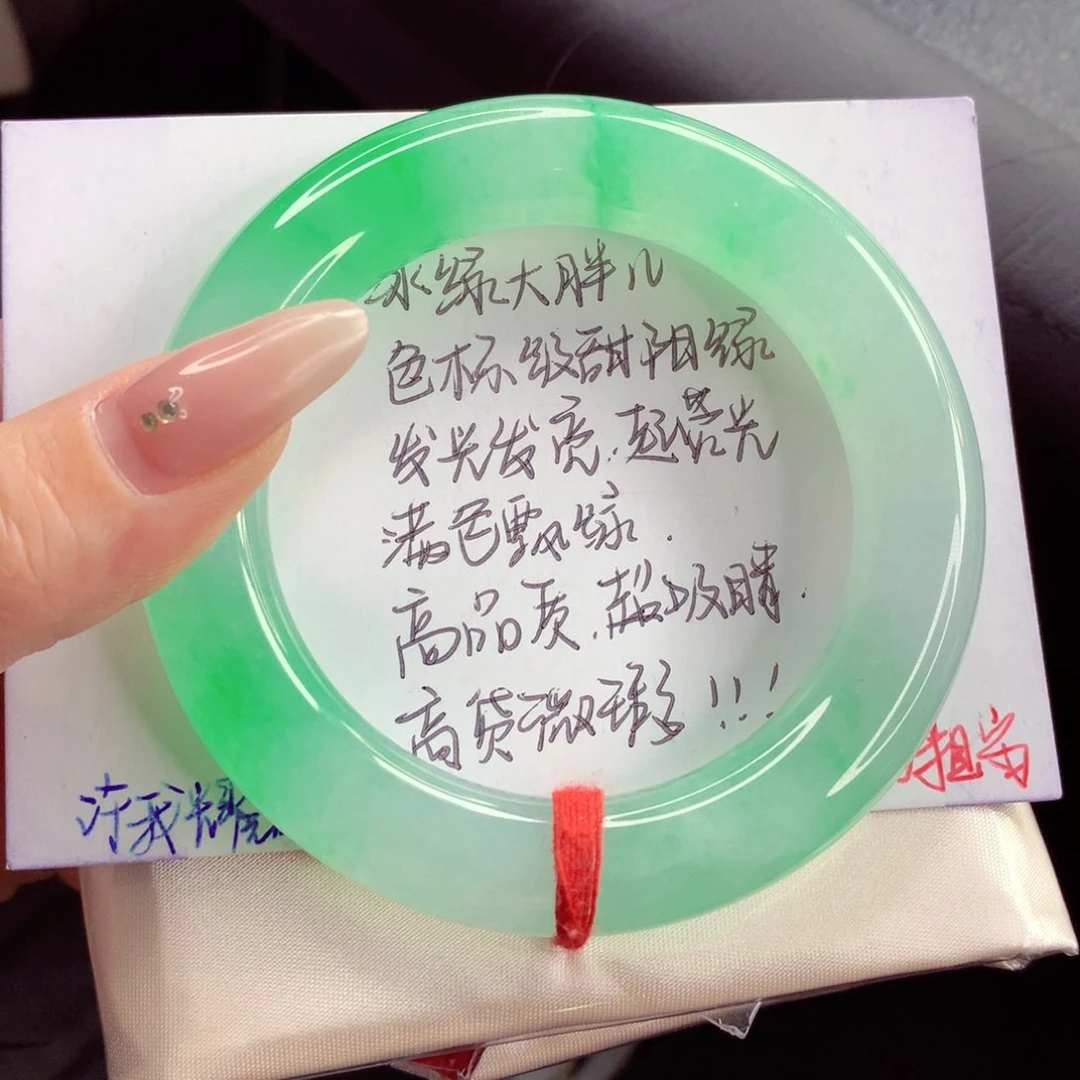 冰绿大胖儿
色标级甜阳绿
发光发亮.起荧光
满色飘绿.
高品质.超级睛.
高贷微瑕!!!